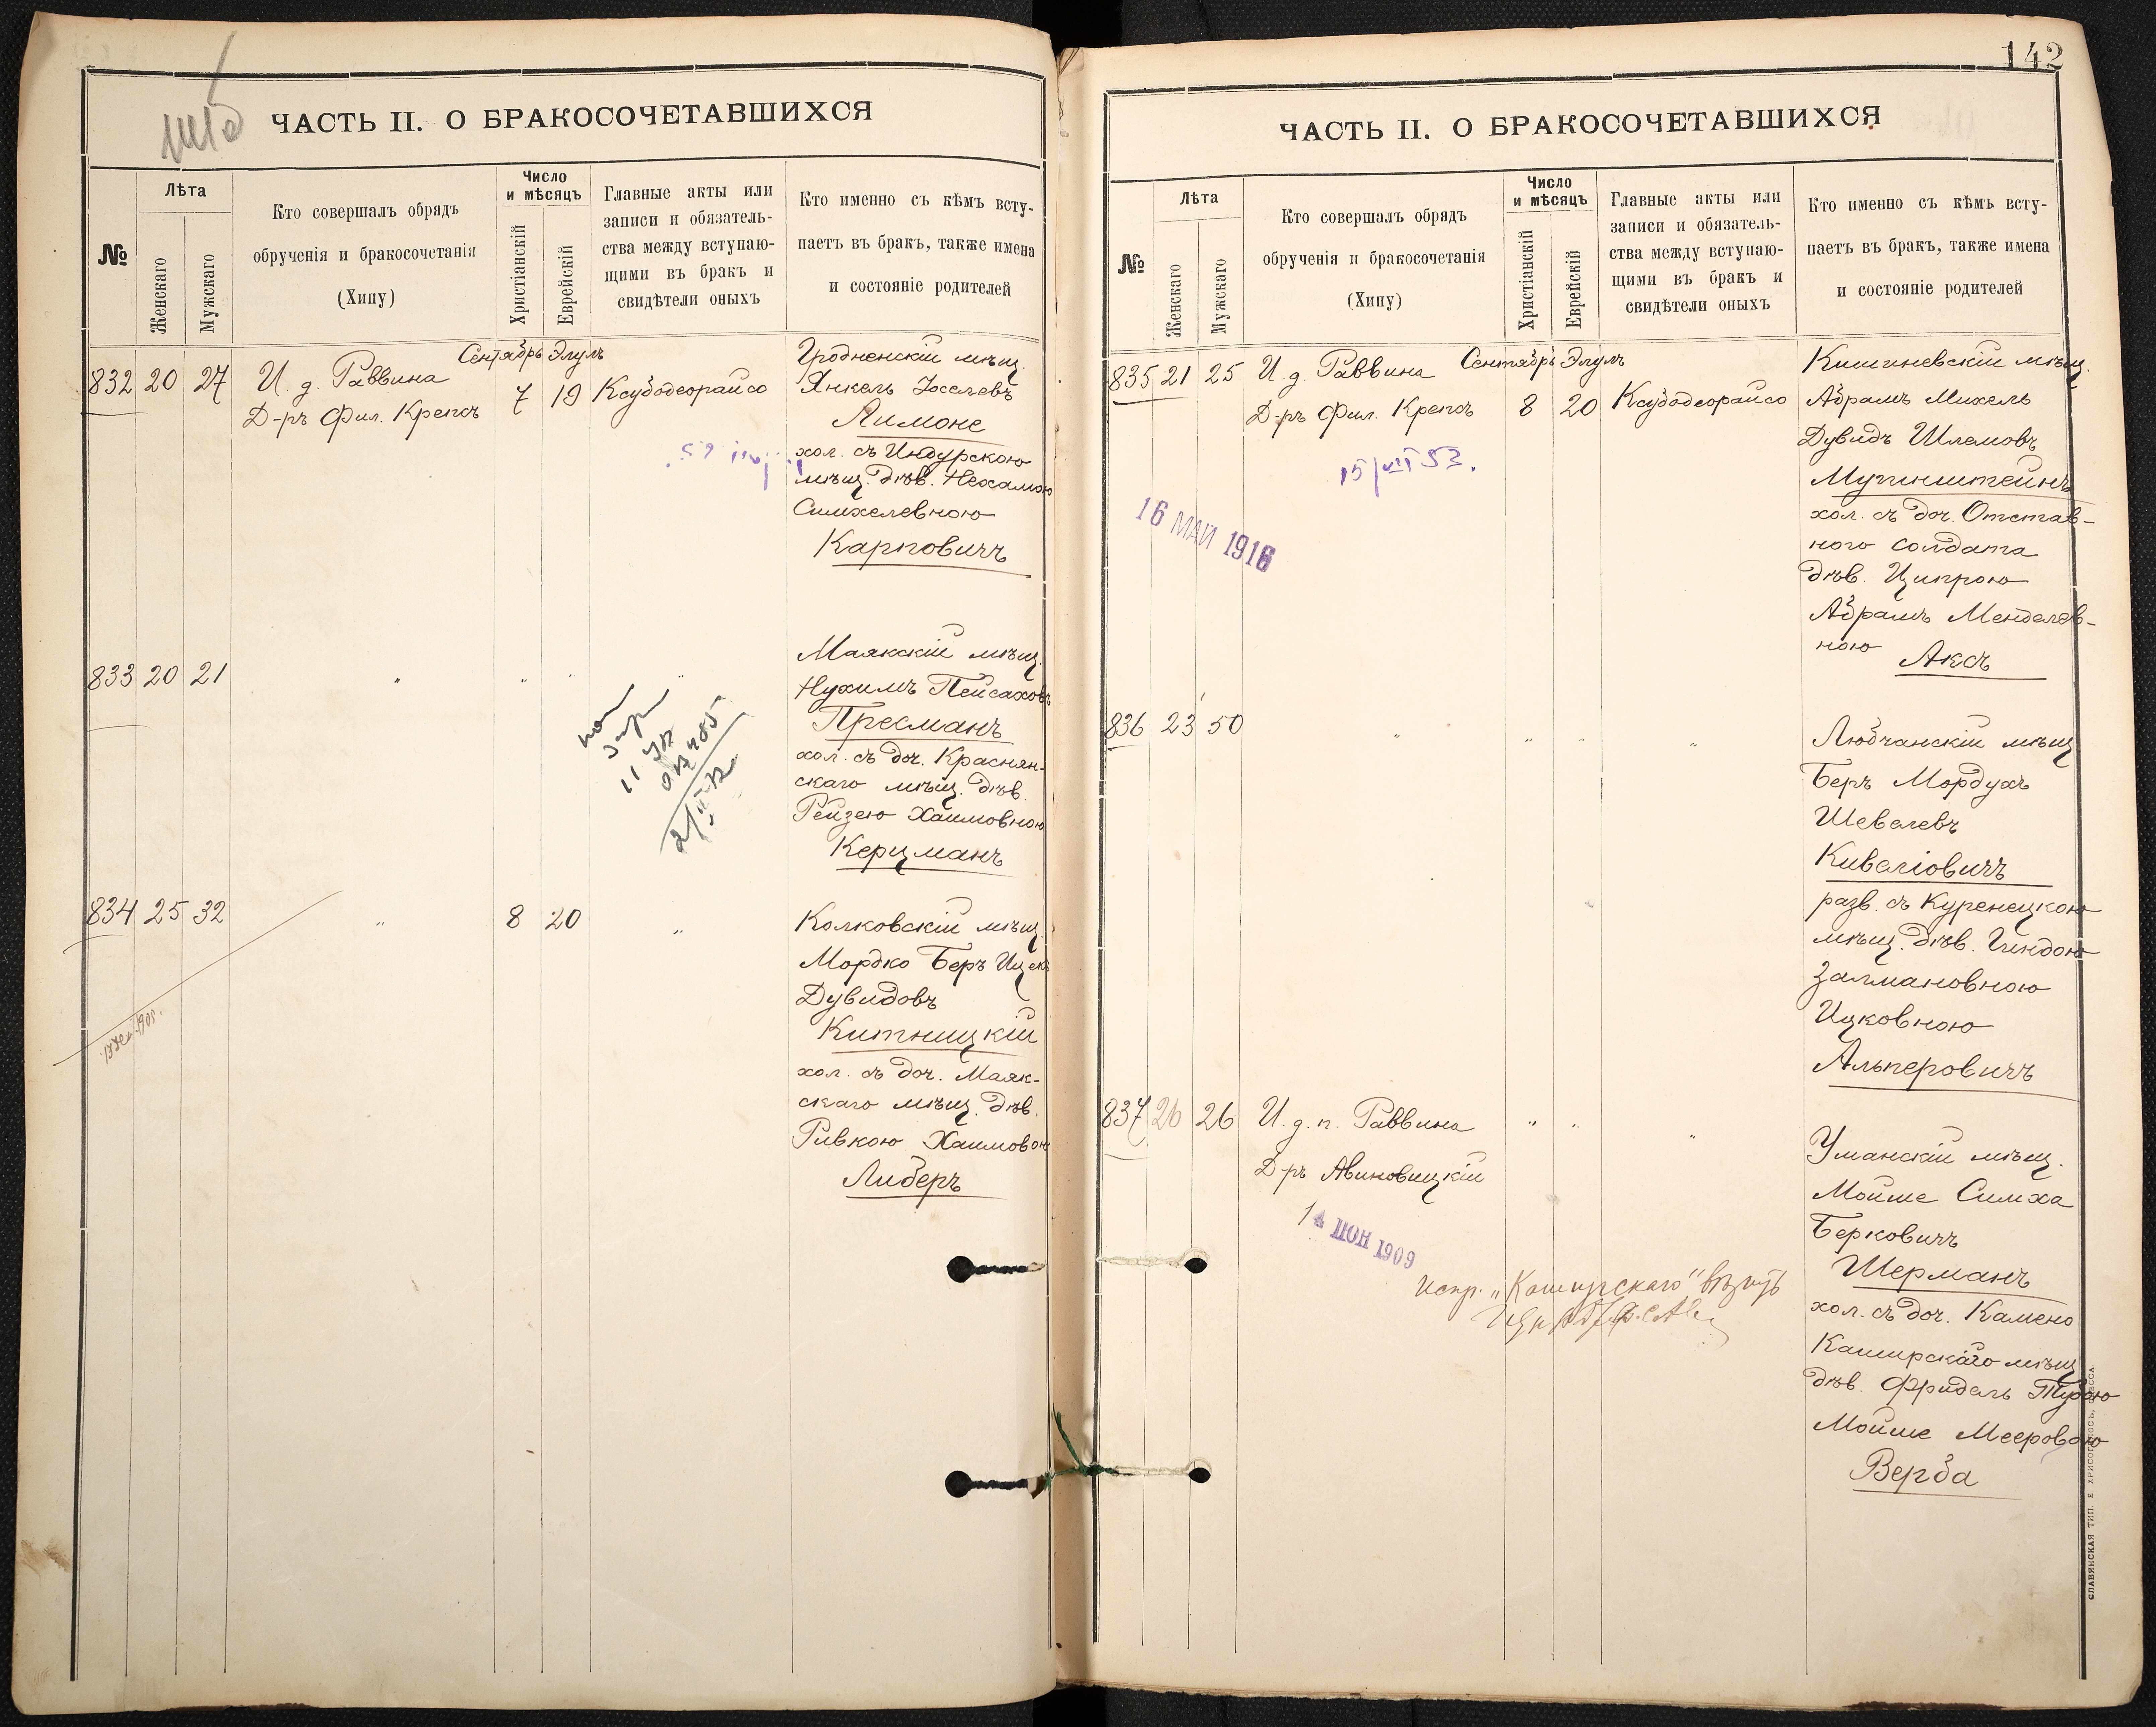 ЧАСТЬ II. О БРАКОСОЧЕТАВШИХСЯ
№
Лѣта
Женскаго
Мужскаго
Кто совершалъ обрядъ
обрученія и бракосочетанія
(Хипу)
Число
и мѣсяцъ
Христіанскій
Еврейскій
Главные акты или
записи и обязатель-
ства между вступаю-
щими въ бракъ и
свидѣтели оныхъ
Кто именно съ кѣмъ всту-
паетъ въ бракъ, также имена
и состояніе родителей
Сентябрь Элулъ
832 20 27 И. д. Раввина
Д-ръ Фил. Крепсъ 7 19 Ксубодеорайсо
Гродненскій мѣщ.
Янкель Іоселевъ
Лимоне
хол. съ Индурскою
мѣщ. дѣв. Нехамою
Симхелевною
Карповичъ
833 20 21 " " " "
Маякскій мѣщ.
Нухимъ Пейсаховъ
Пресманъ
хол. съ доч. Краснян-
скаго мѣщ. дѣв.
Рейзею Хаимовною
Керцманъ
834 25 32 " 8 20 "
Колковскій мѣщ.
Мордко Беръ Ицекъ
Дувидовъ
Китницкій
хол. съ доч. Маяк-
скаго мѣщ. дѣв.
Ривкою Хаимовою
Либеръ
142
ЧАСТЬ II. О БРАКОСОЧЕТАВШИХСЯ
№
Лѣта
Женскаго
Мужскаго
Кто совершалъ обрядъ
обрученія и бракосочетанія
(Хипу)
Число
и мѣсяцъ
Христіанскій
Еврейскій
Главные акты или
записи и обязатель-
ства между вступаю-
щими въ бракъ и
свидѣтели оныхъ
Кто именно съ кѣмъ всту-
паетъ въ бракъ, также имена
и состояніе родителей
Сентябрь Элулъ
835 21 25 И. д. Раввина
Д-ръ Фил. Крепсъ 8 20 Ксубодеорайсо
15/VII 53.
16 МАЙ 1916
Кишиневскій мѣщ.
Абрамъ Михель
Дувидъ Шлемовъ
Мучникштейнъ
хол. съ доч. Отстав-
ного солдата
дѣв. Ципрою
Абрамъ Менделев-
ною
Аксъ
836 23 50 " " " "
Любчанскій мѣщ.
Беръ Мордухъ
Шевелевъ
Кивеліовичъ
разв. съ Куренецкою
мѣщ. дѣв. Гиндою
Залмановною
Ицковною
Альперовичъ
837 26 26 И. д. п. Раввина " " "
Д-ръ Авиновицкій
14 ІЮН 1909
Испр. „Каширскаго" вѣрить
Уманскій мѣщ.
Мойше Симха
Берковичъ
Шерманъ
хол. съ доч. Камено
Каширскаго мѣщ.
дѣв. Фридель Тубою
Мойше Мееровою
Верба
СЛАВЯНСКАЯ ТИП. Е. ХРИСОГЕЛОСЪ, ОДЕССА